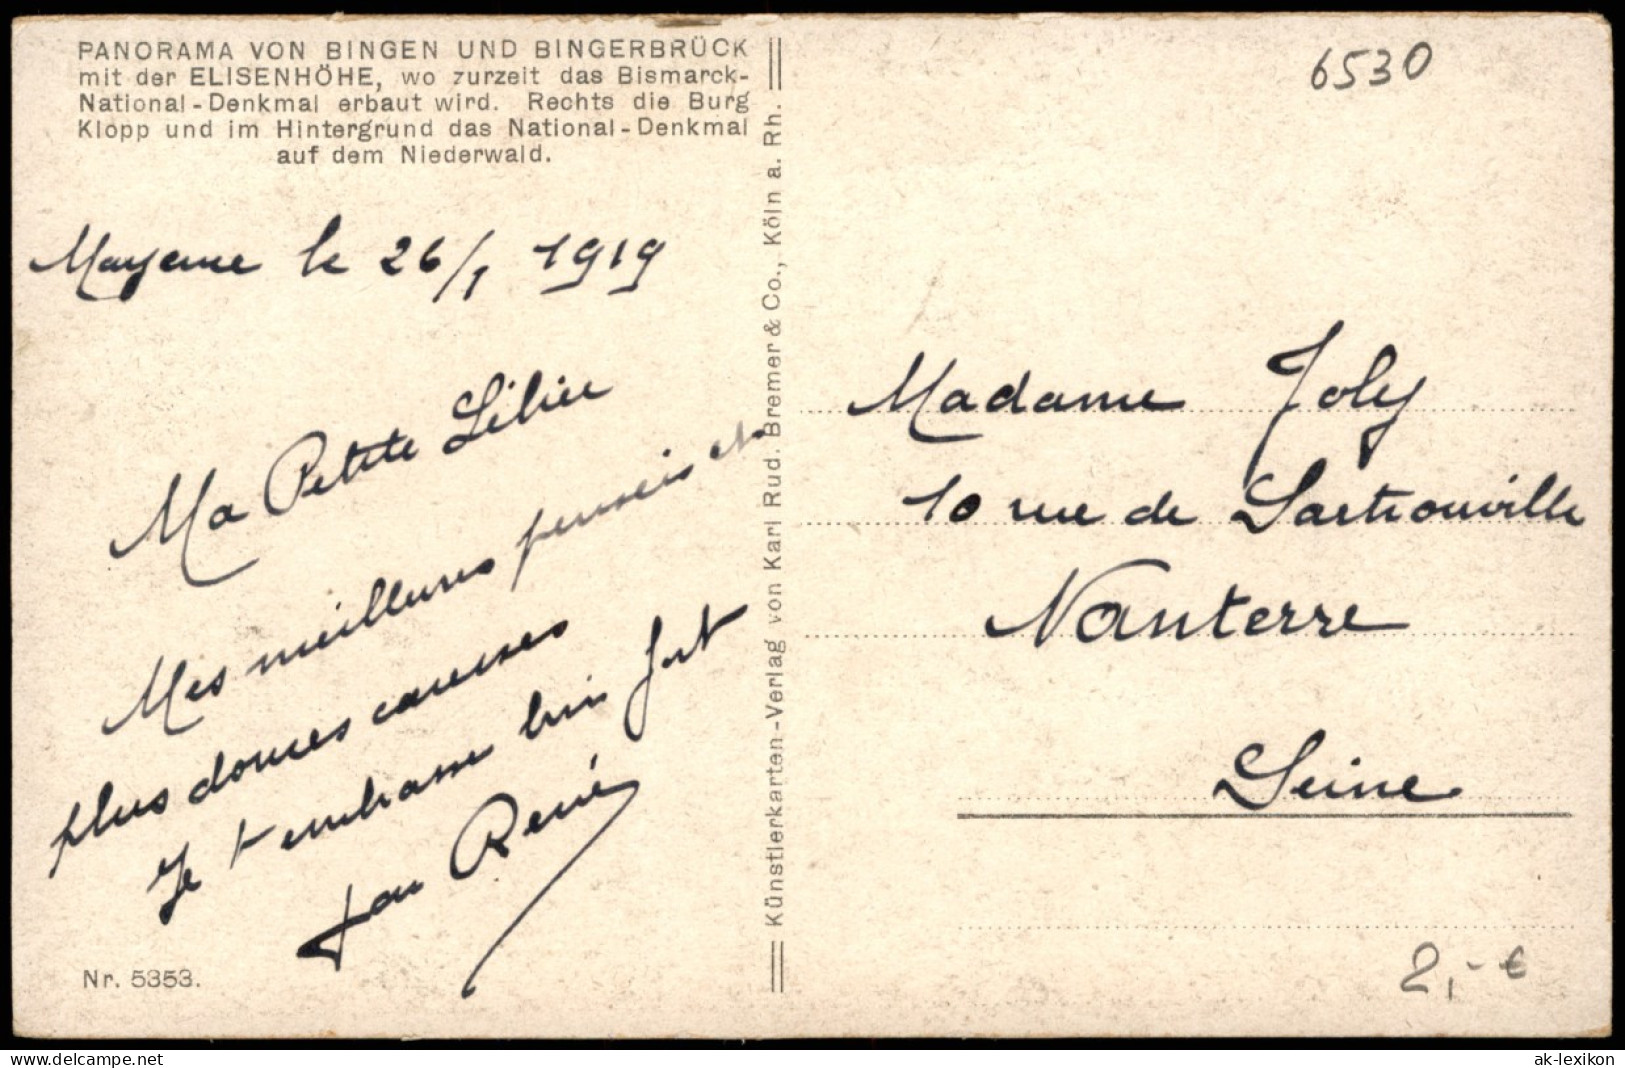 PANORAMA VON BINGEN UND BINGERBRÜCK
mit der ELISENHÖHE, wo zurzeit das Bismarck-
National-Denkmal erbaut wird. Rechts die Burg
Klopp und im Hintergrund das National-Denkmal
auf dem Niederwald.
Mayence le 26/1 1919
Ma Petite Lilie
Mes meilleures pensées et
plus douces caresses
Je t'embrasse bien fort
ton René
Nr. 5353.
Künstlerkarten-Verlag von Karl Rud. Bremer & Co., Köln a. Rh.
6530
Madame Joly
10 rue de Sartrouville
Nanterre
Seine
2,- €
www.delcampe.net
ak-lexikon